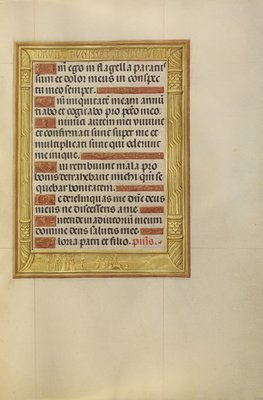 m ego in flagella paratus
sum et dolor meus in conspec
tu meo semper.
m iniquitatē meam annū
tiabo et cogitabo pro pctō meo.
nimici autem mei vivunt
et confirmati sunt super me et
multiplicati sunt qui oderunt
me inique.
ui retribuunt mala pro
bonis detrahebant michi qm̄ se
quebar bonitatem.
e derelinquas me dn̄e deus
meus ne discesseris a me
ntende in adiutorium meum
domine deus salutis mee
loria patri et filio. p̄us.